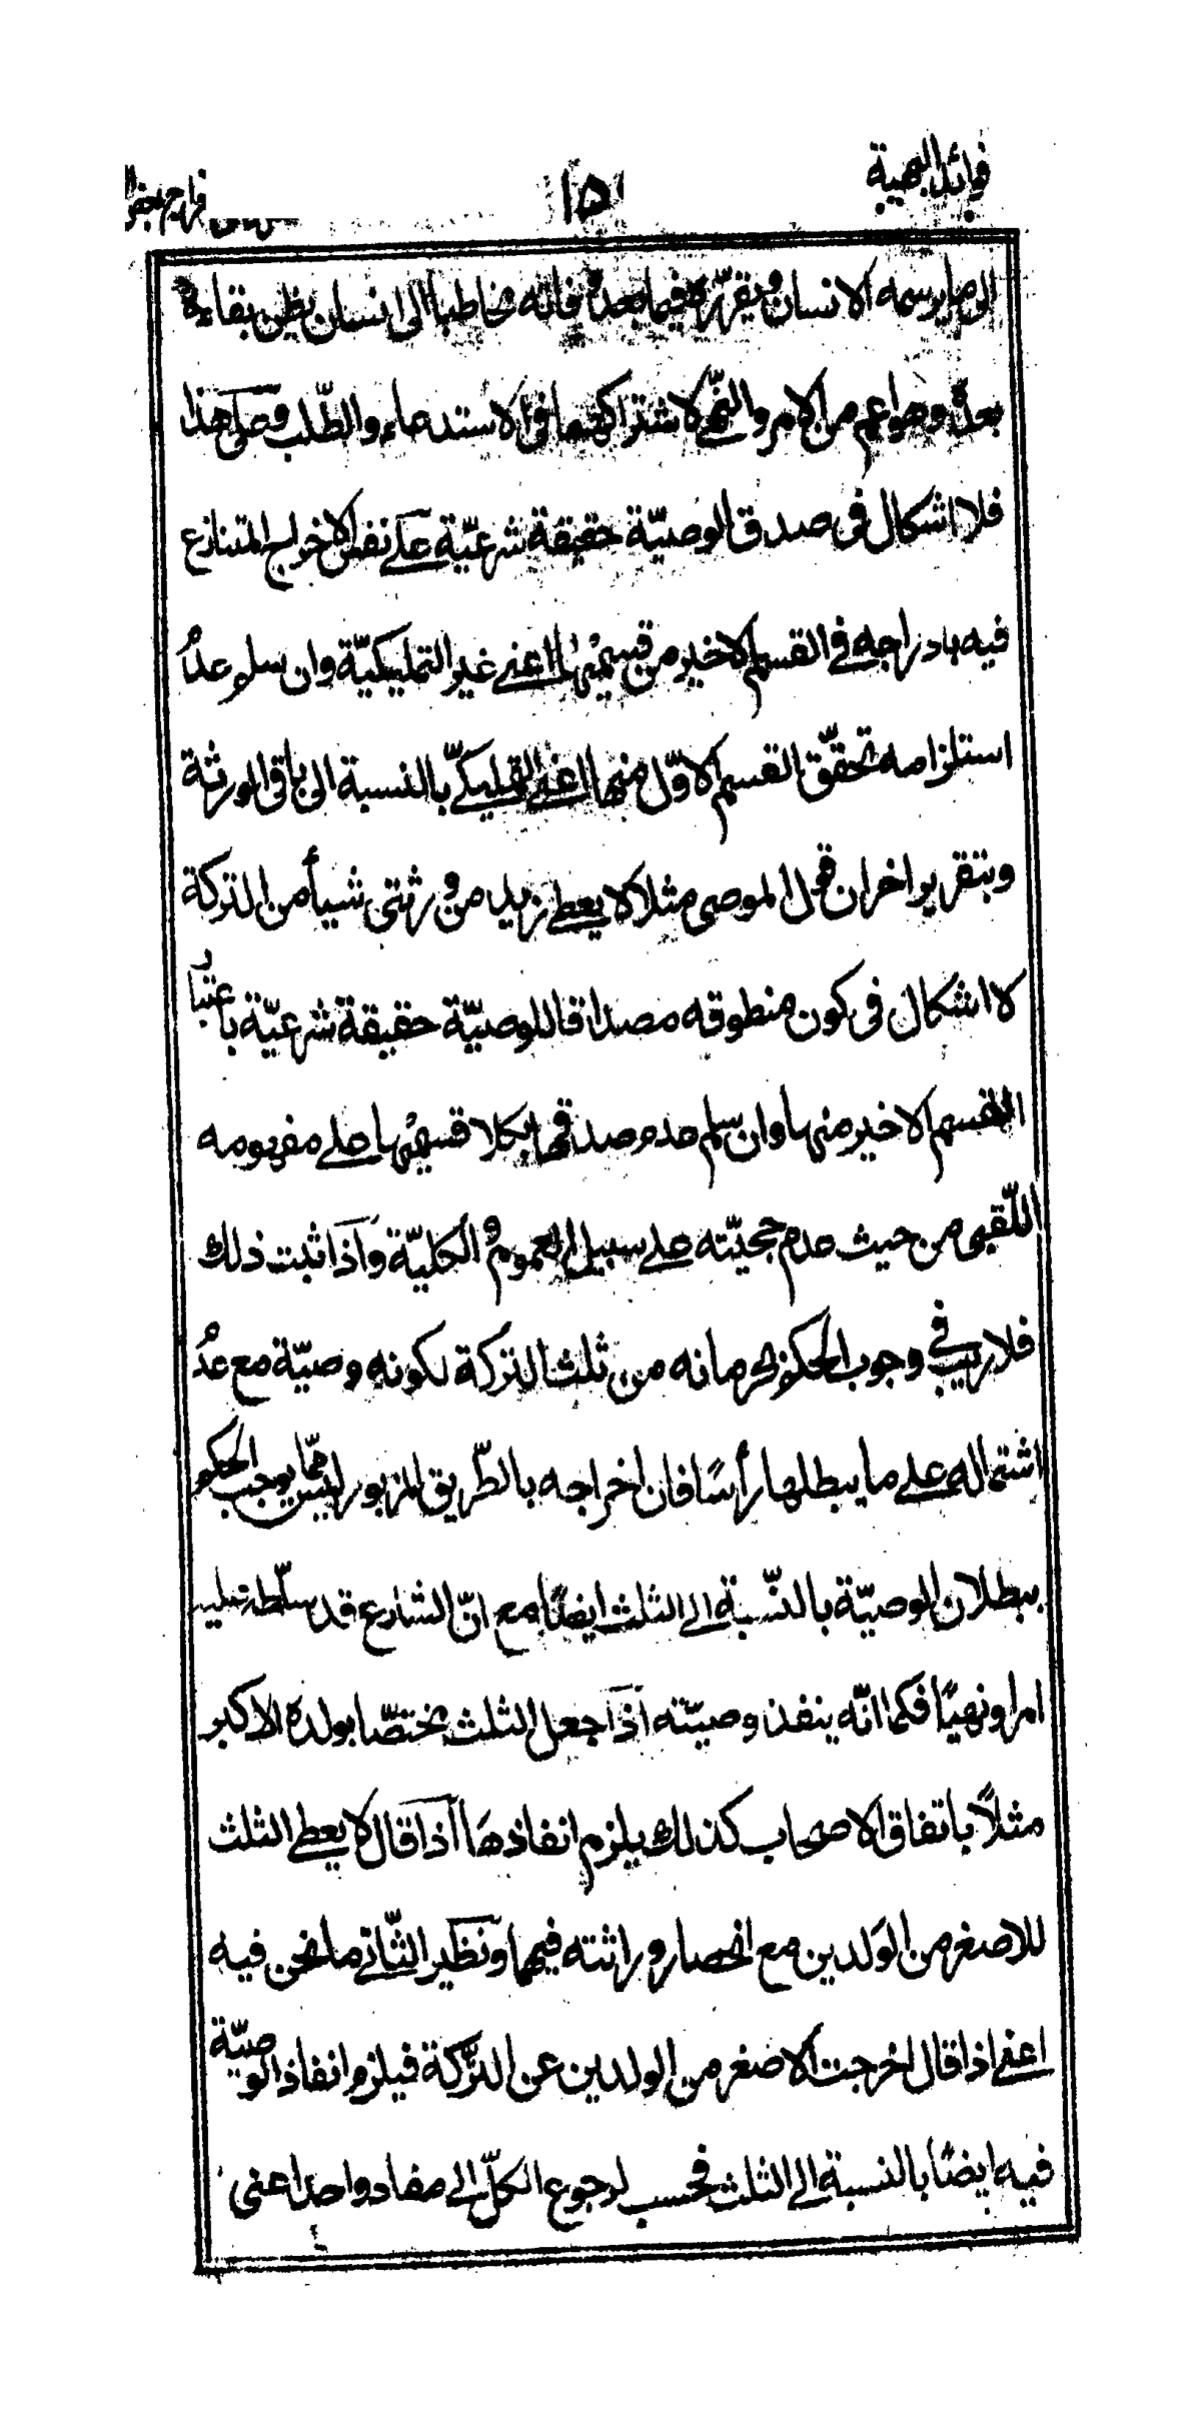 فوائد البهية
١٥
الى ما يرسمه الانسان ويقرّره فيما بعده فانه مخاطبا الى انسان يظن بقاءه
بعده وهو اعم من الامر والنّهى لاشتراكهما فى الاستدعاء والطّلب وعلى هذا
فلا اشكال فى صدق الوصيّة حقيقة شرعيّة على نفس الاخراج المتنازع
فيه بادراجه فى القسم الاخير من قسميْها اعنى غير التمليكيّة وان سلم عدم
استلزامه تحقّق القسم الاوّل منهما اعنى التمليكىّ بالنسبة الى باقى الورثة
وبتقرير اخر ان قول الموصى مثلا لا يعطى زيد من ورثتى شيأ من التركة
لا اشكال فى كون منطوقه مصداقا للوصيّة حقيقة شرعيّة باعتبار
القسم الاخير منها وان سلم عدم صدقها بكلا قسميْها على مفهومه
اللّقبى من حيث عدم حجيّته على سبيل العموم الكليّة واذا ثبت ذلك
فلا ريب فى وجوب الحكم بحرمانه من ثلث التركة لكونه وصيّة مع عدم
اشتماله على ما يبطلها رأسًا فان اخراجه بالطّريق المزبور ليس ممّا يوجب الحكم
ببطلان الوصيّة بالنّسبة الى الثلث ايضًا مع انّ الشارع قد سلّطه عليه
امرا ونهيًا فكما انّه ينفذ وصيّته اذا جعل الثلث مختصّا بولده الاكبر
مثلًا باتفاق الاصحاب كذلك يلزم انفاذها اذا قال لا يعطى الثلث
للاصغر من الوَلدين مع انحصار وراثته فيهما ونظير الثّانى ما نحن فيه
اعنى اذا قال اخرجت الاصغر من الولدين عن التركة فيلزم انفاذ الوصيّة
فيه ايضًا بالنسبة الى الثلث فحسب لرجوع الكلّ الى مفاد واحد اعنى